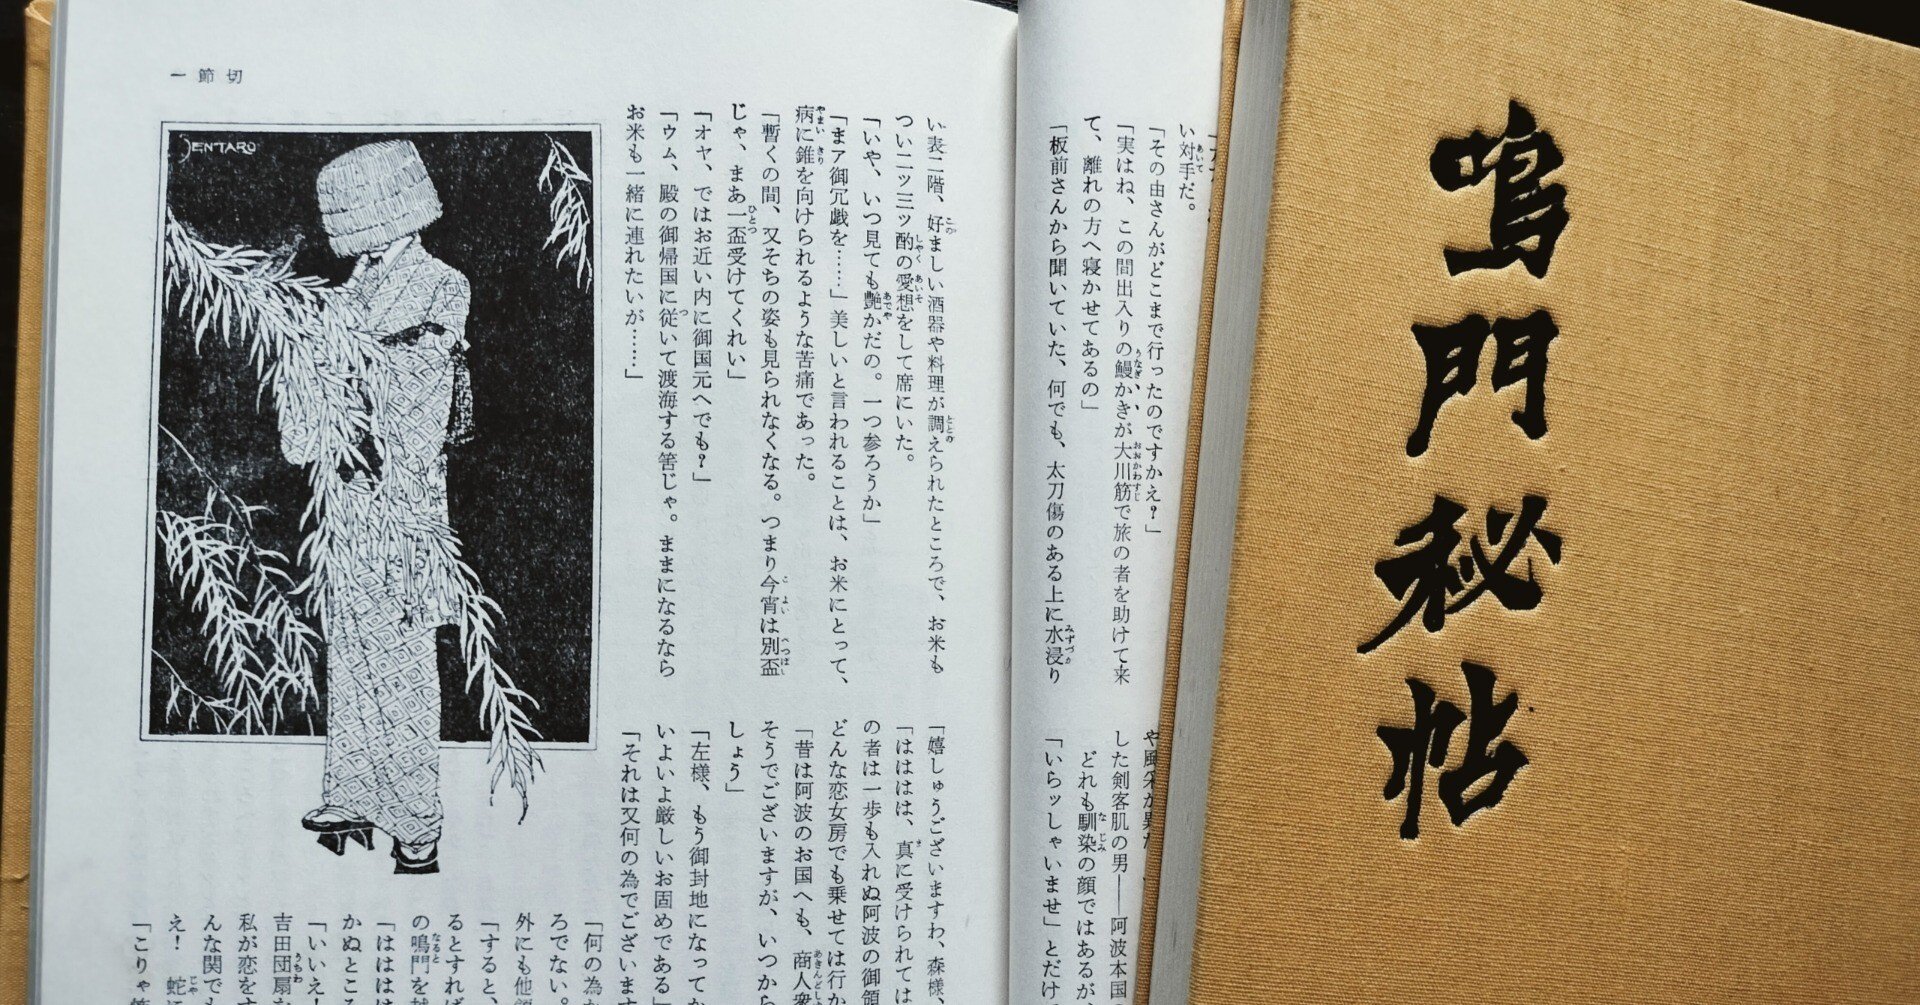 鳴門秘帖
一節切
JENTARO
い対手だ。
あいて
「その由さんがどこまで行ったのですかえ?」
「実はね、この間出入りの鰻かきが大川筋で旅の者を助けて来
うなぎ
おおかわすじ
て、離れの方へ寝かせてあるの」
「板前さんから聞いていた、何でも、太刀傷のある上に水浸り
みずづか
した剣客肌の男——阿波本国
どれも馴染の顔ではあるが、
なじみ
「いらッしゃいませ」とだけ
い表二階、好ましい酒器や料理が調えられたところで、お米も
この
ととの
つい二ッ三ッ酌の愛想をして席にいた。
しゃく
あいそ
「いや、いつ見ても艶かだの。一つ参ろうか」
あでや
「まア御冗戯を……」美しいと言われることは、お米にとって、
病に錐を向けられるような苦痛であった。
やまい
きり
「暫くの間、又そちの姿も見られなくなる。つまり今宵は別盃
こよい
べっぱい
じゃ、まあ一盃受けてくれい」
ひとつ
「オヤ、ではお近い内に御国元へでも?」
「ウム、殿の御帰国に従いて渡海する筈じゃ。ままになるなら
つ
お米も一緒に連れたいが……」
「嬉しゅうございますわ、森様、
「はははは、真に受けられては
ま
の者は一歩も入れぬ阿波の御領
どんな恋女房でも乗せては行か
「昔は阿波のお国へも、商人衆
あきんどしゅ
そうでございますが、いつから
しょう」
「左様、もう御封地になってか
いよいよ厳しいお固めである」
「それは又何の為でございます
「何の為か
ろでない。
外にも他領
「すると、
るとすれば
の鳴門を越
なると
「はははは
かぬところ
「いいえ!
吉田団扇な
うちわ
私が恋をす
んな関でも
え! 蛇
じゃ
「こりゃ